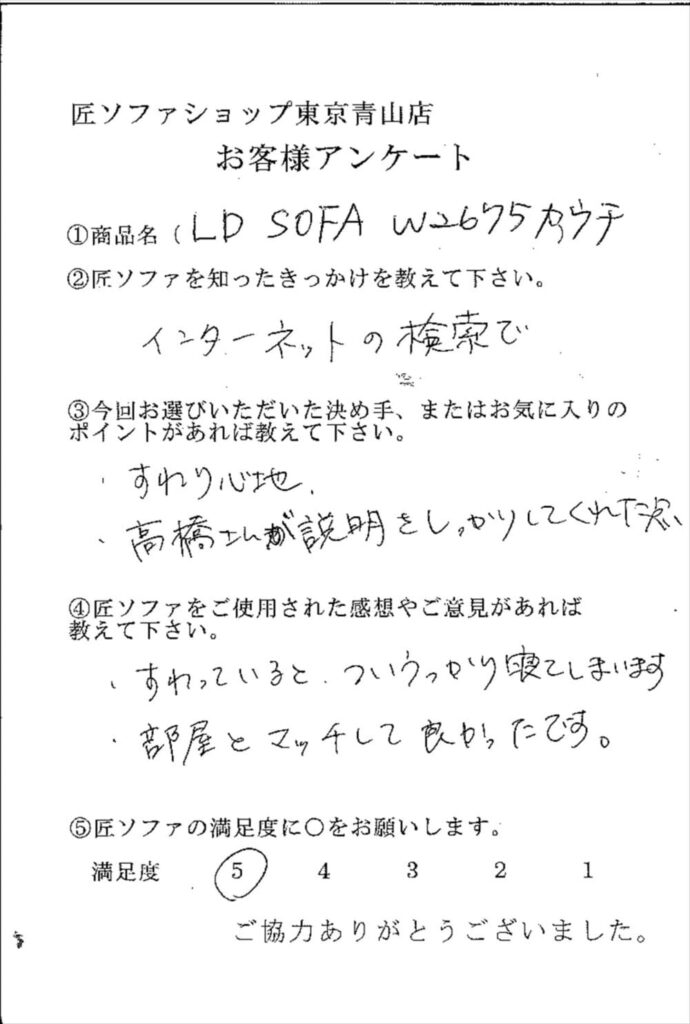 匠ソファショップ東京青山店
お客様アンケート
①商品名（LD SOFA W2675カウチ
②匠ソファを知ったきっかけを教えて下さい。
インターネットの検索で
③今回お選びいただいた決め手、またはお気に入りの
ポイントがあれば教えて下さい。
・すわり心地、
・高橋さんが説明をしっかりしてくれた点、
④匠ソファをご使用された感想やご意見があれば
教えて下さい。
・すわっていると、ついうっかり寝てしまいます
・部屋とマッチして良かったです。
⑤匠ソファの満足度に○をお願いします。
満足度 5 4 3 2 1
ご協力ありがとうございました。